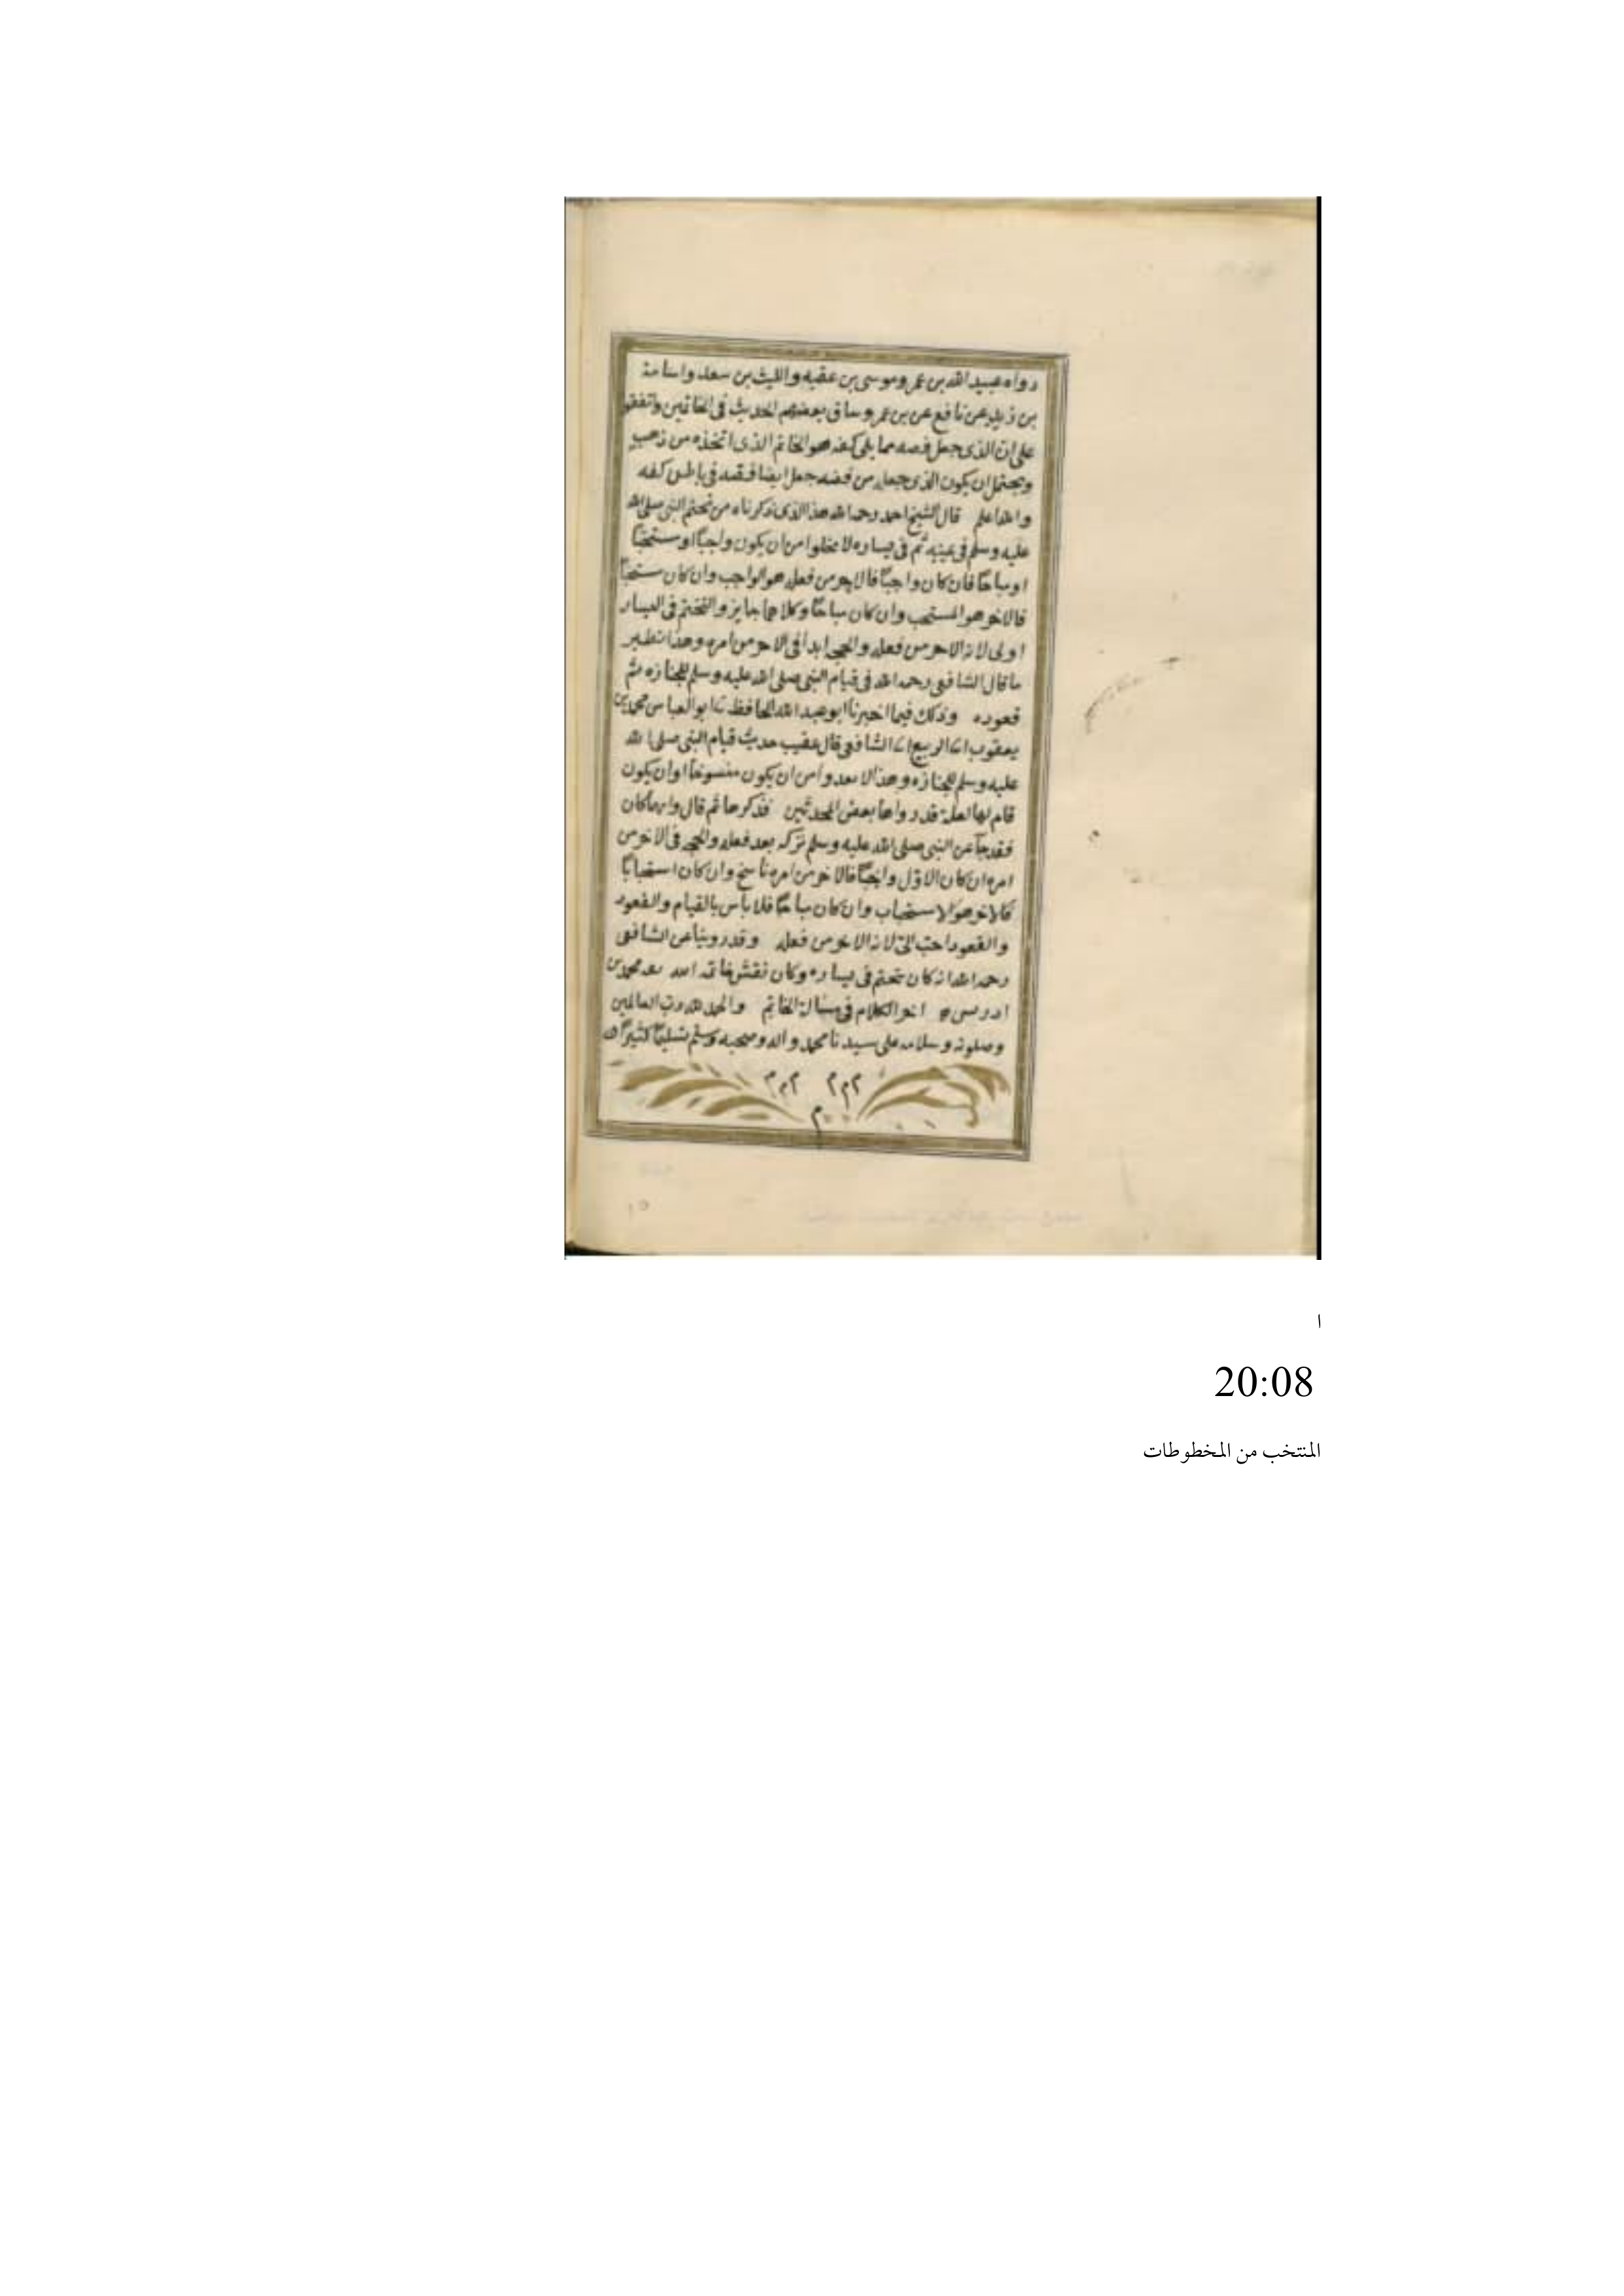 رواه عبيد الله بن عمر وموسى بن عقبه والليث بن سعد واسامة
بن زيد عن نافع عن بن عمر وساق بعضهم الحديث في الخاتمين واتفقو
على ان الذى جعل فصه مما يلى كفه هو الخاتم الذى اتخذه من ذهب
ويحتمل ان يكون الذى جعله من فضه جعل ايضا فصه في باطن كفه
والله اعلم قال الشيخ احمد رحمه الله هذا الذى ذكرناه من تختم النبى صلى الله
عليه وسلم في يمينه ثم فى يساره لا يخلوا من ان يكون واجبًا او مستحبًا
او مباحًا فان كان واجبًا فالاخر من فعله هو الواجب وان كان مستحبًا
فالاخر هو المستحب وان كان مباحًا وكلاهما جايز والتختم فى اليسار
اولى لانه الاخر من فعله والحجه ابدا فى الاخر من امره وهذا نظير
ما قال الشافعى رحمه الله فى قيام النبى صلى الله عليه وسلم للجنازه ثم
قعوده وذلك فيما اخبرنا ابو عبد الله الحافظ ابو العباس محمد بن
يعقوب الربيع الشافعى قال عقيب حديث قيام النبى صلى الله
عليه وسلم للجنازه وهذا لا يعدوا من ان يكون منسوخا او ان يكون
قام لها لعلة قد رواها بعض المحدثين فذكرها ثم قال وايهما كان
فقد جآ عن النبى صلى الله عليه وسلم تركه بعد فعله والحجه فى الاخر من
امره ان كان الاول واجبًا فالاخر من امره ناسخ وان كان استحبابًا
فالاخر هو الاستحباب وان كان مباحًا فلا باس بالقيام والقعود
والقعود احب الىّ لانه الاخر من فعله وقد روينا عن الشافعى
رحمه الله انه كان يتختم فى يساره وكان نقش خاتمه الله محمد بن
ادريس اخر الكلام فى مسالة الخاتم والحمد لله رب العالمين
وصلوته وسلامه على سيدنا محمد واله وصحبه وسلم تسليمًا كثيرًا
م م م م م م
م
١٥
ا
20:08
المنتخب من المخطوطات